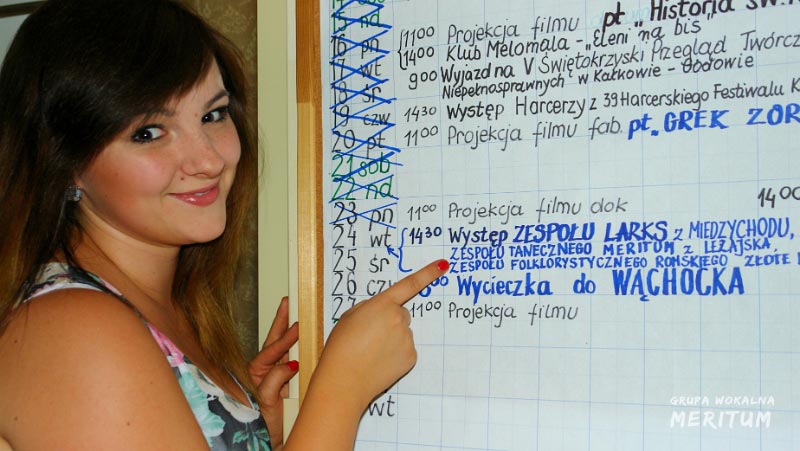 15 nd
16 pn 11⁰⁰ Projekcja filmu pt „Historia
14⁰⁰ Klub Melomala - „Eleni na bis"
17 wt 9⁰⁰ Wyjazd na V Świętokrzyski Przegląd Twórcz
Niepełnosprawnych w Kałkowie - Godowie
18 śr
19 czw 14³⁰ Występ Harcerzy z 39 Harcerskiego Festiwalu K
20 pt 11⁰⁰ Projekcja filmu fab. pt. GREK ZOR
21 sob
22 nd
23 pn 11⁰⁰ Projekcja filmu dok 14⁰⁰
24 wt 14³⁰ Występ ZESPOŁU LARKS z MIĘDZYCHODU,
ZESPOŁU TANECZNEGO MERITUM z LEŻAJSKA,
25 śr ZESPOŁU FOLKLORYSTYCZNEGO ROMSKIEGO ZŁOTE
26 Wycieczka do WĄCHOCKA
27 11⁰⁰ Projekcja filmu
wt
GRUPA WOKALNA
MERITUM